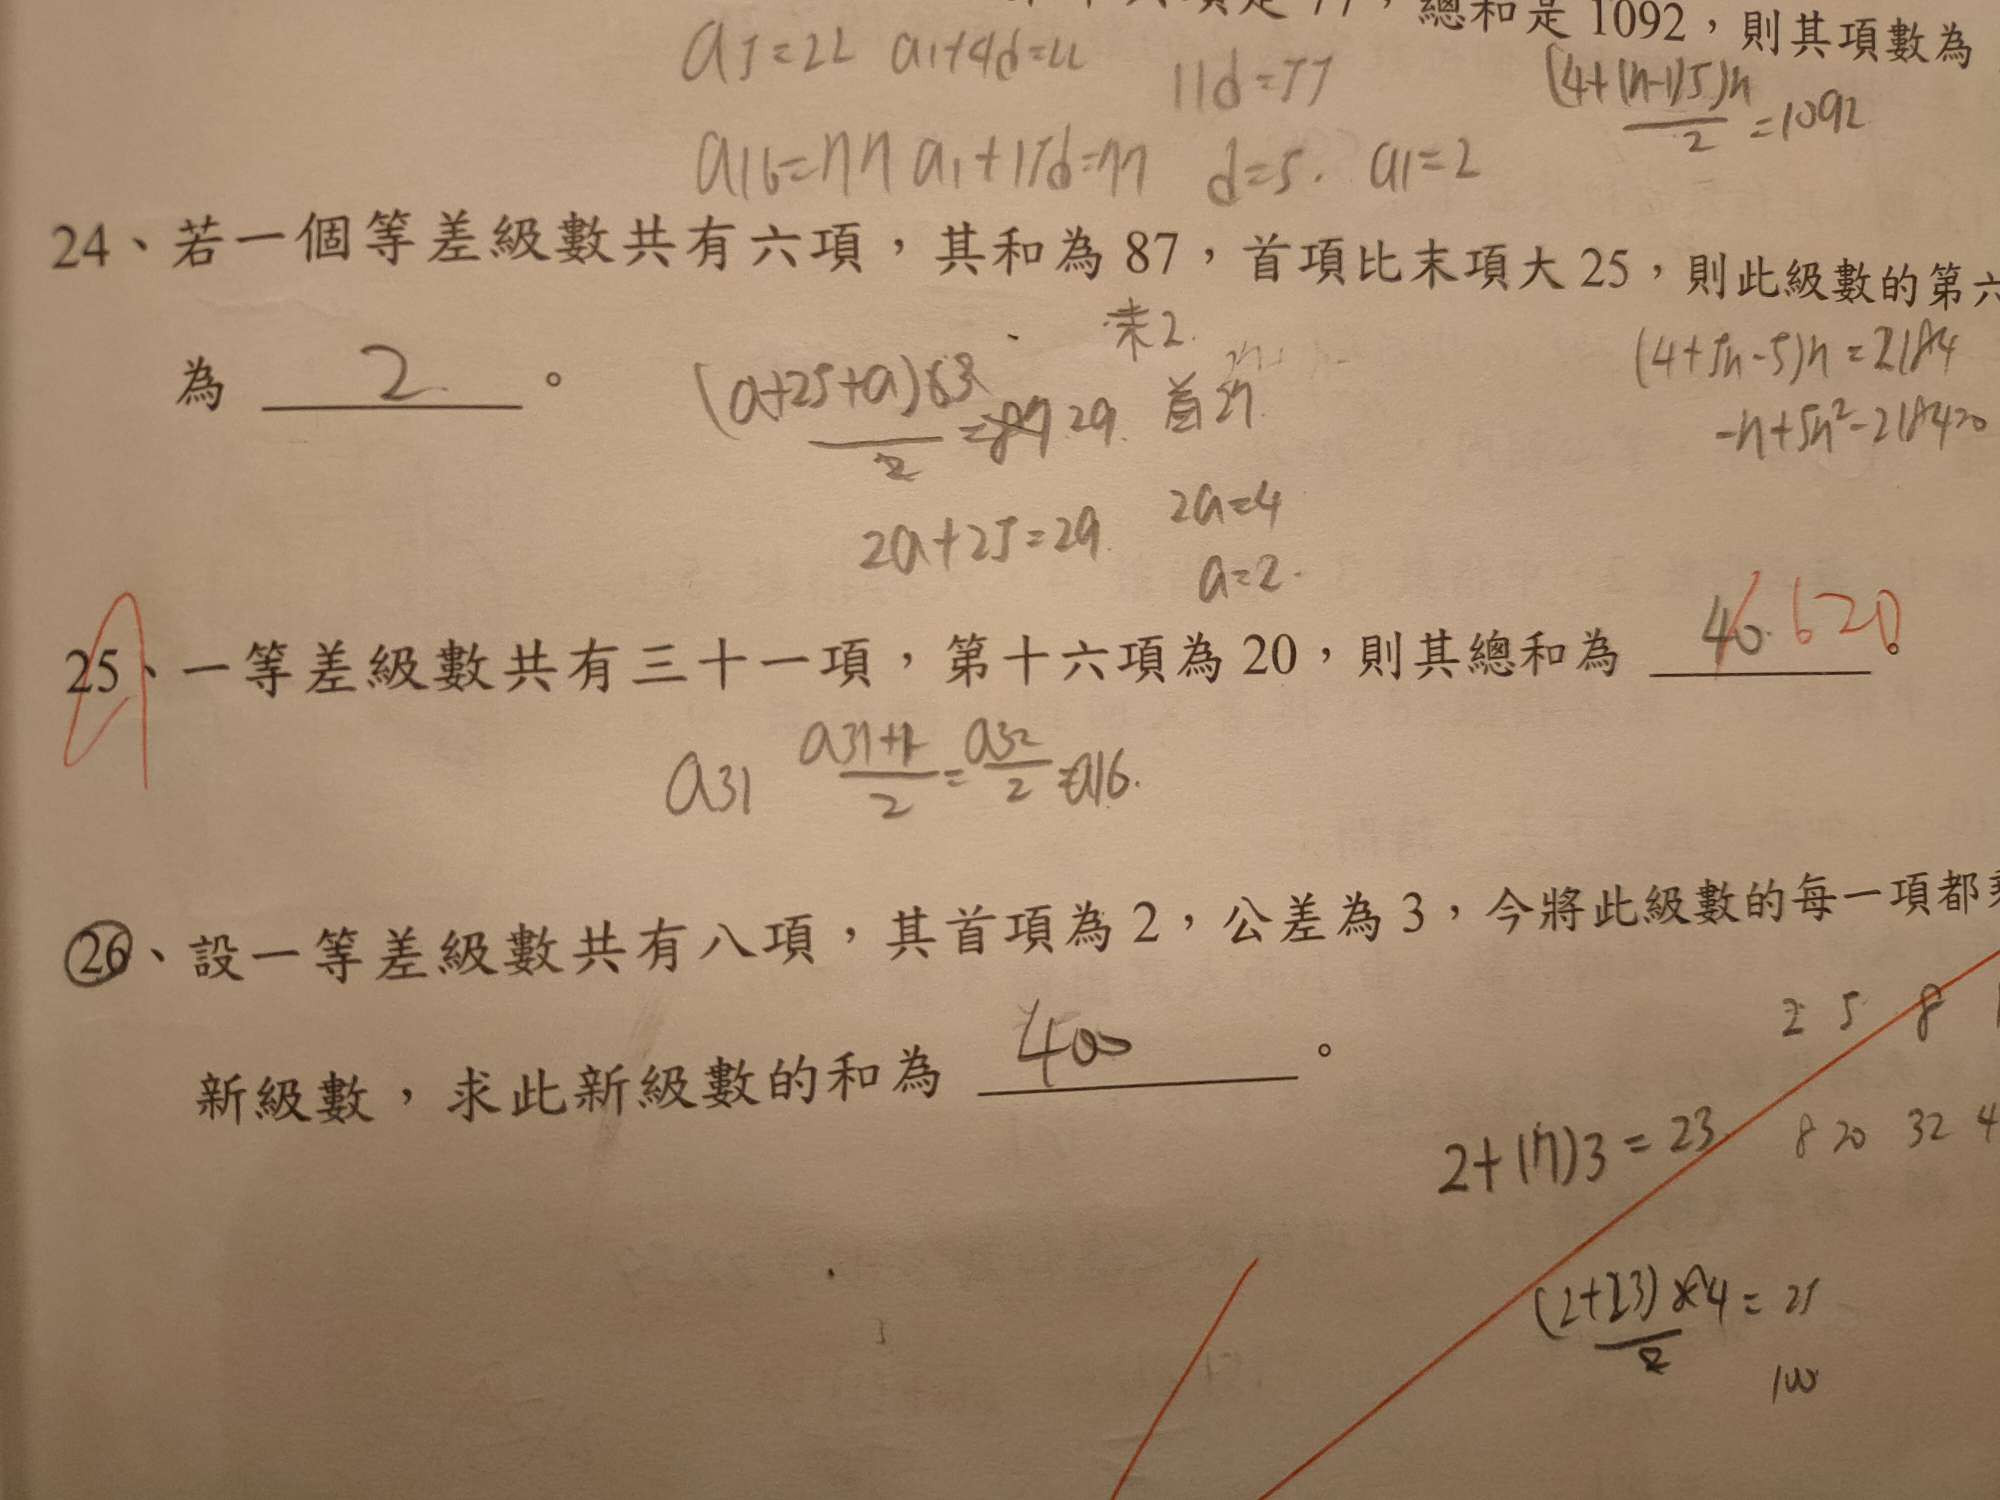 總和是 1092，則其項數為
a5=22 a1+4d=22 11d=55 (4+(n-1)5)n/2 =1092
a16=77 a1+15d=77 d=5. a1=2
24、若一個等差級數共有六項，其和為 87，首項比末項大 25，則此級數的第六
為 2 。
末2.
首27.
(a+25+a)63/2 =87 29.
2a+25=29. 2a=4
a=2.
(4+5n-5)n=2184
-n+5n²-2184=0
25、一等差級數共有三十一項，第十六項為 20，則其總和為 40. 620 。
a31 a31+1/2 = a32/2 =a16.
26、設一等差級數共有八項，其首項為 2，公差為 3，今將此級數的每一項都
2 5 8
新級數，求此新級數的和為 400 。
2+(7)3=23 8 20 32 4
(2+23)×4/2 = 25
100